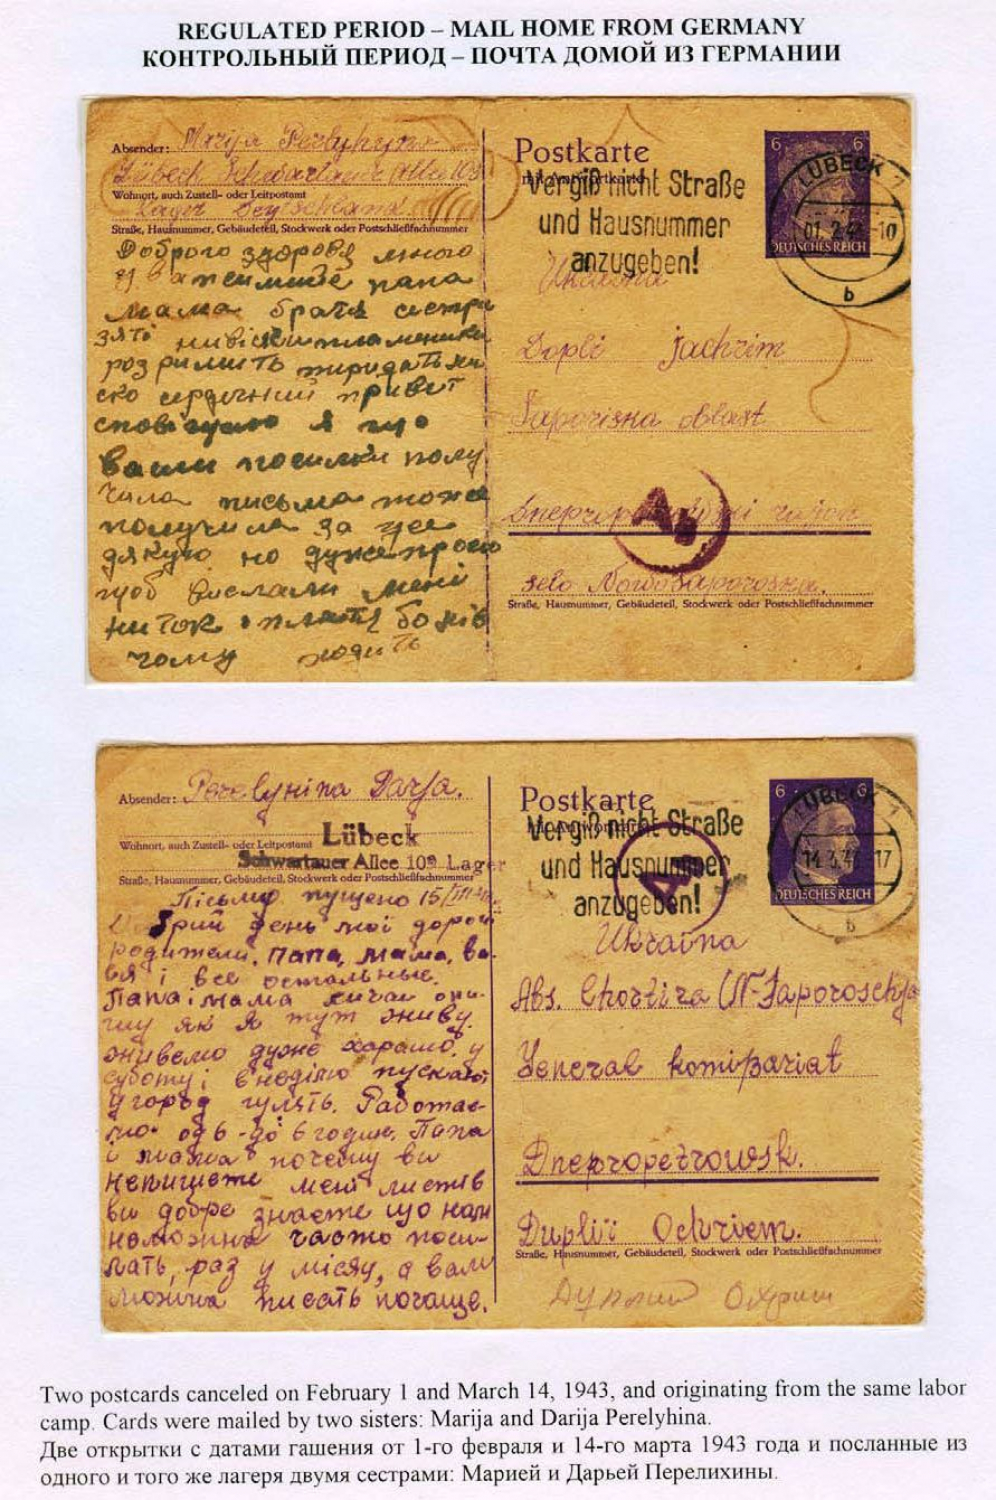 REGULATED PERIOD – MAIL HOME FROM GERMANY
КОНТРОЛЬНЫЙ ПЕРИОД – ПОЧТА ДОМОЙ ИЗ ГЕРМАНИИ
Absender: Marija
Lübeck
Wohnort, auch Zustell- oder Leitpostamt
Lager
Straße, Hausnummer, Gebäudeteil, Stockwerk oder Postschließfachnummer
Доброго здоровя
папа
мама братя сестри
зяті
сердечний привет
я що
ваши посилки полу
чила письма тоже
получила за це
дякую но дуже прошу
щоб вислали мені
ниток
чому ходить
Postkarte
mit Antwortkarte
Vergiß nicht Straße
und Hausnummer
anzugeben!
6 6
DEUTSCHES REICH
LÜBECK 1
b
Ukraina
Dopli jachrim
Saporisna oblast
Ab
selo
Straße, Hausnummer, Gebäudeteil, Stockwerk oder Postschließfachnummer
Absender: Perelyhina Darja.
Lübeck
Wohnort, auch Zustell- oder Leitpostamt
Schwartauer Allee 109 Lager
Straße, Hausnummer, Gebäudeteil, Stockwerk oder Postschließfachnummer
Письмо пущено 15/III
день мої дорогі
родители. Папа, мама, ва-
ся і все остальные.
Папа і мама хичаю опи-
шу як я тут живу.
живемо дуже харашо, у
суботу і внеділю пускают
у город гулять. Работае-
мо од 6 - до 6 годин. Папа
і мама почему ви
непишете мені листів
ви добре знаете що нам
неможна часто поси-
лать, раз у місяц, а вам
можина писать почаще.
Postkarte
mit Antwortkarte
Vergiß nicht Straße
und Hausnummer
anzugeben!
A
6 6
DEUTSCHES REICH
LÜBECK 1
14.3.43 17
b
Ukraina
Abs. Chortiza (N-Saporoschja
General komißariat
Dnepropetrowsk.
Duplii Ochriem.
Straße, Hausnummer, Gebäudeteil, Stockwerk oder Postschließfachnummer
Two postcards canceled on February 1 and March 14, 1943, and originating from the same labor
camp. Cards were mailed by two sisters: Marija and Darija Perelyhina.
Две открытки с датами гашения от 1-го февраля и 14-го марта 1943 года и посланные из
одного и того же лагеря двумя сестрами: Марией и Дарьей Перелихины.